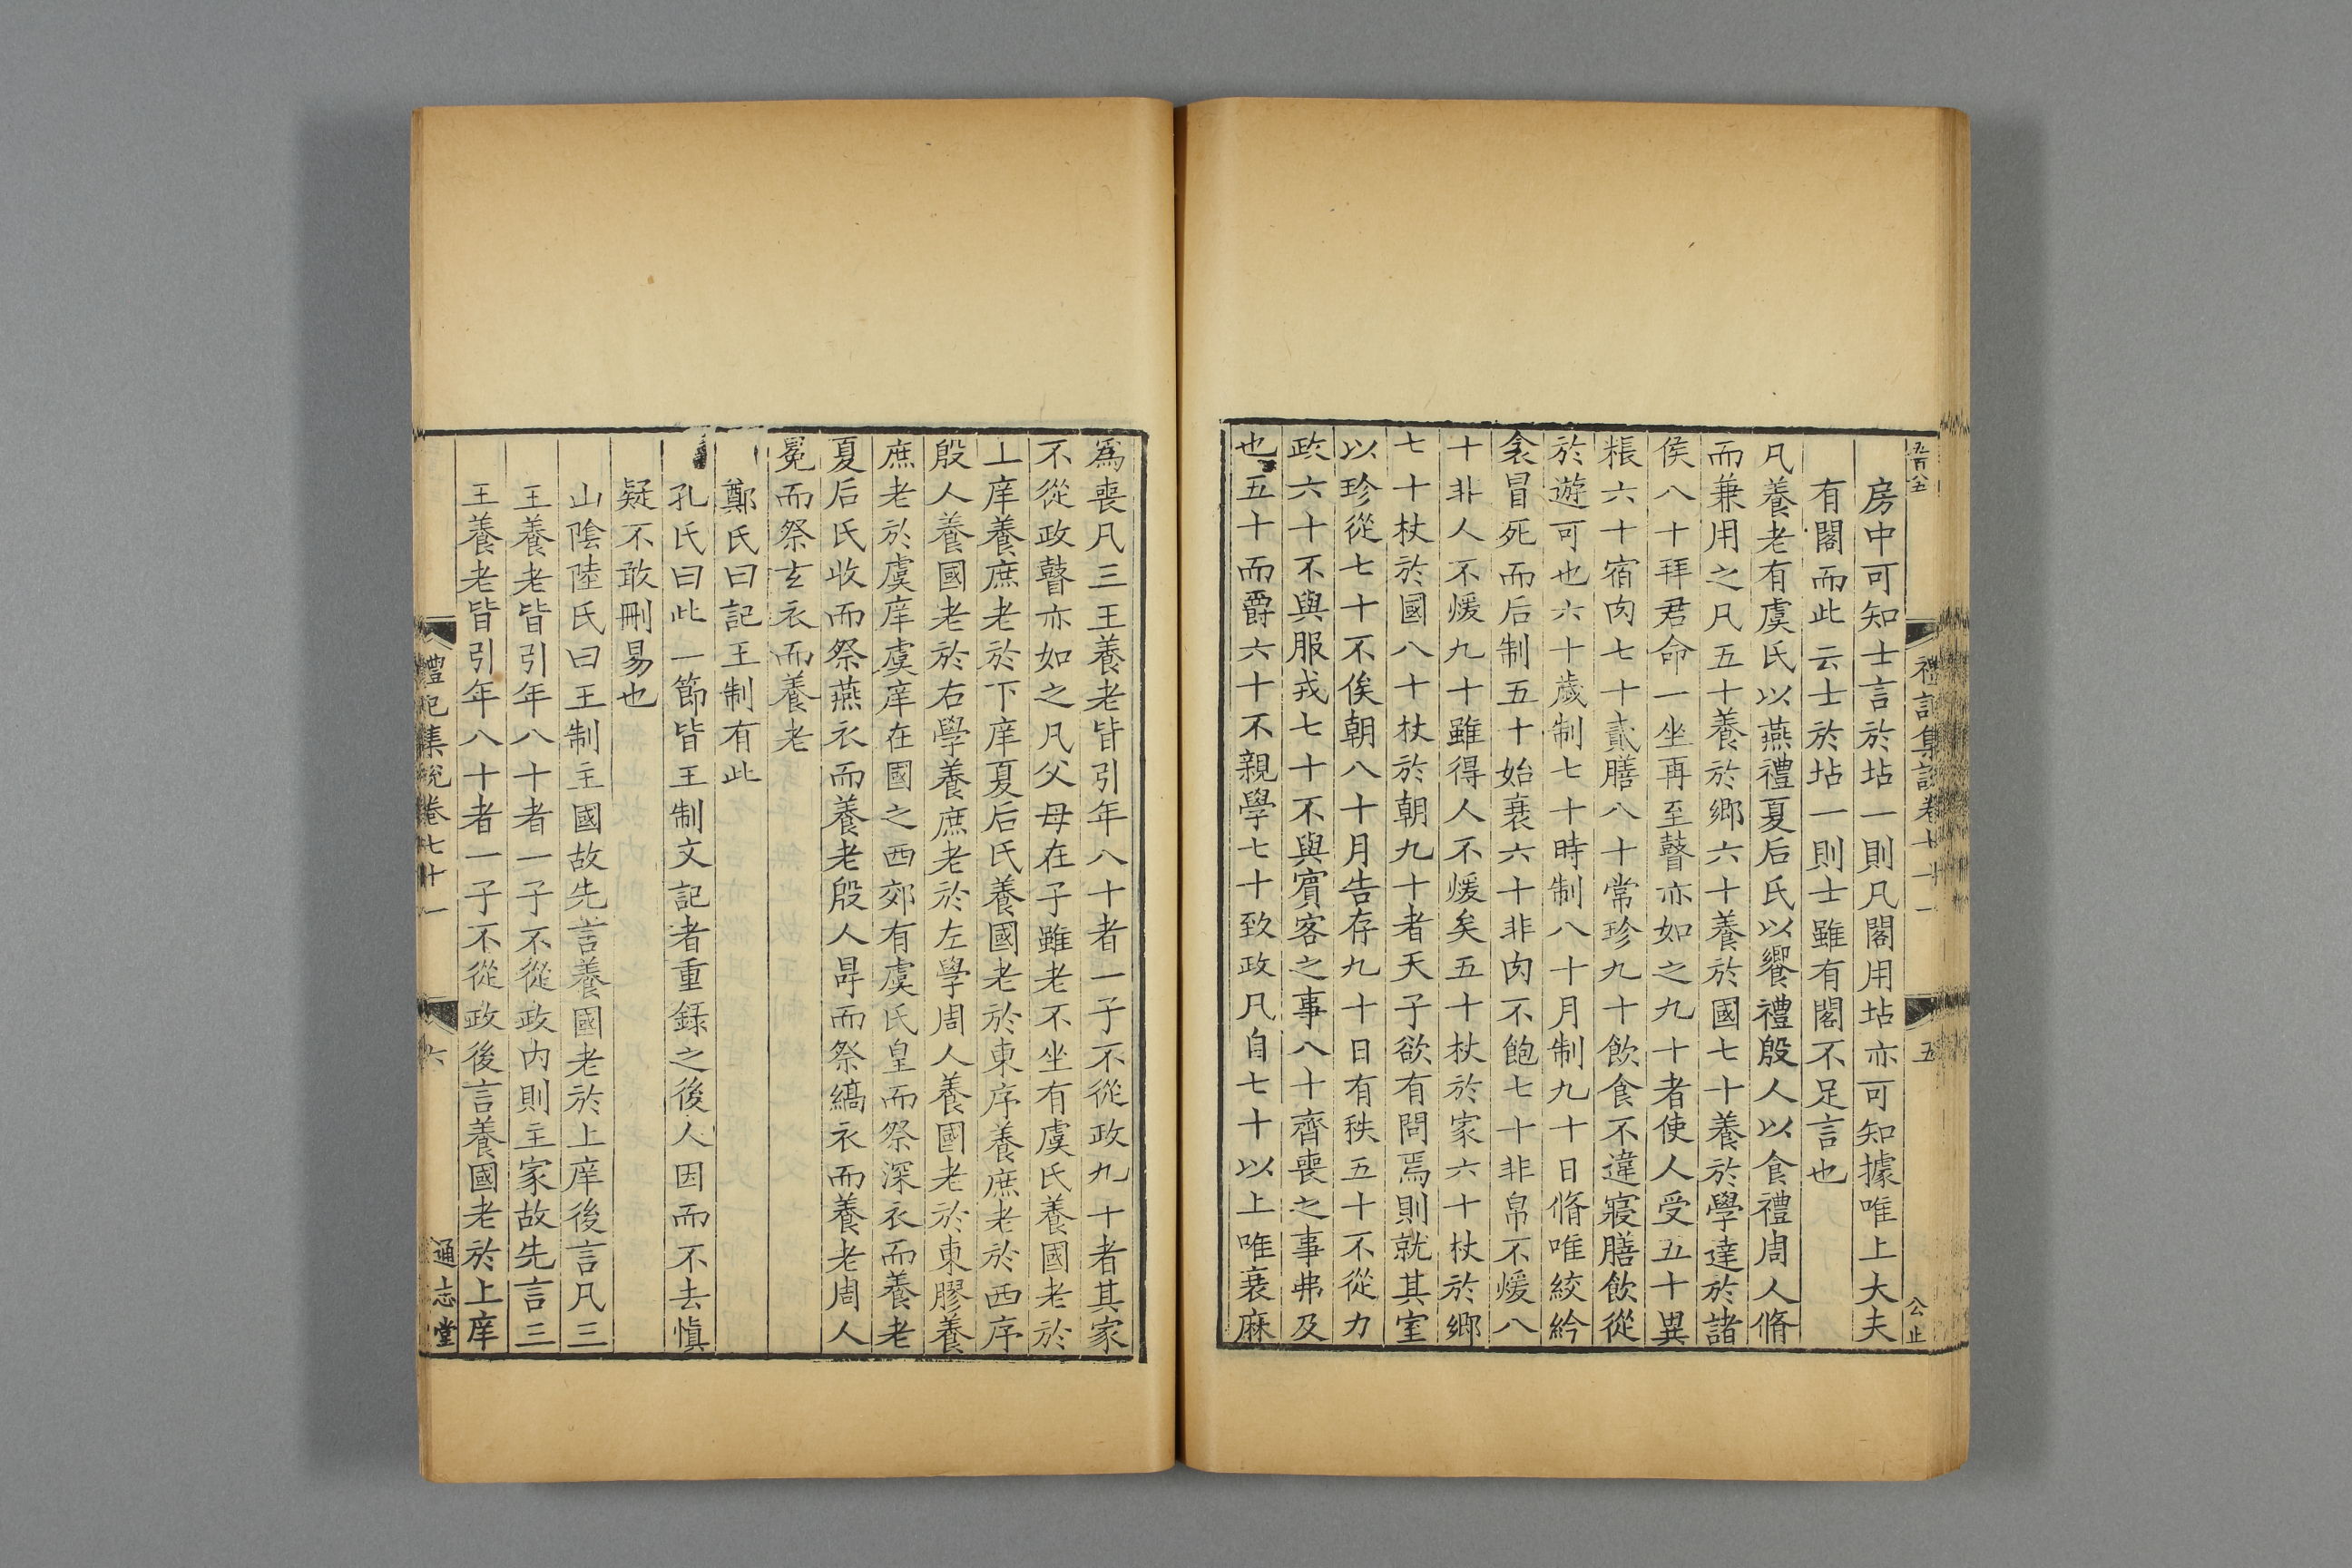 五百八五
禮記集說卷七十一
五
公止
房中可知士言於坫一則凡閣用坫亦可知據唯上大夫
有閣而此云士於坫一則士雖有閣不足言也
凡養老有虞氏以燕禮夏后氏以饗禮殷人以食禮周人脩
而兼用之凡五十養於鄉六十養於國七十養於學達於諸
侯八十拜君命一坐再至瞽亦如之九十者使人受五十異
粻六十宿肉七十貳膳八十常珍九十飲食不違寢膳飲從
於遊可也六十歲制七十時制八十月制九十日脩唯絞紟
衾冒死而后制五十始衰六十非肉不飽七十非帛不煖八
十非人不煖九十雖得人不煖矣五十杖於家六十杖於鄉
七十杖於國八十杖於朝九十者天子欲有問焉則就其室
以珍從七十不俟朝八十月告存九十日有秩五十不從力
政六十不與服戎七十不與賓客之事八十齊喪之事弗及
也五十而爵六十不親學七十致政凡自七十以上唯衰麻
爲喪凡三王養老皆引年八十者一子不從政九十者其家
不從政瞽亦如之凡父母在子雖老不坐有虞氏養國老於
上庠養庶老於下庠夏后氏養國老於東序養庶老於西序
殷人養國老於右學養庶老於左學周人養國老於東膠養
庶老於虞庠虞庠在國之西郊有虞氏皇而祭深衣而養老
夏后氏收而祭燕衣而養老殷人冔而祭縞衣而養老周人
冕而祭玄衣而養老
鄭氏曰記王制有此
孔氏曰此一節皆王制文記者重録之後人因而不去愼
疑不敢刪易也
山陰陸氏曰王制主國故先言養國老於上庠後言凡三
王養老皆引年八十者一子不從政內則主家故先言三
王養老皆引年八十者一子不從政後言養國老於上庠
禮記集說卷七十一
六
通志堂